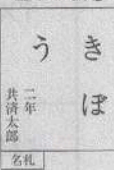 きぼ
う
二年
共済太郎
名札